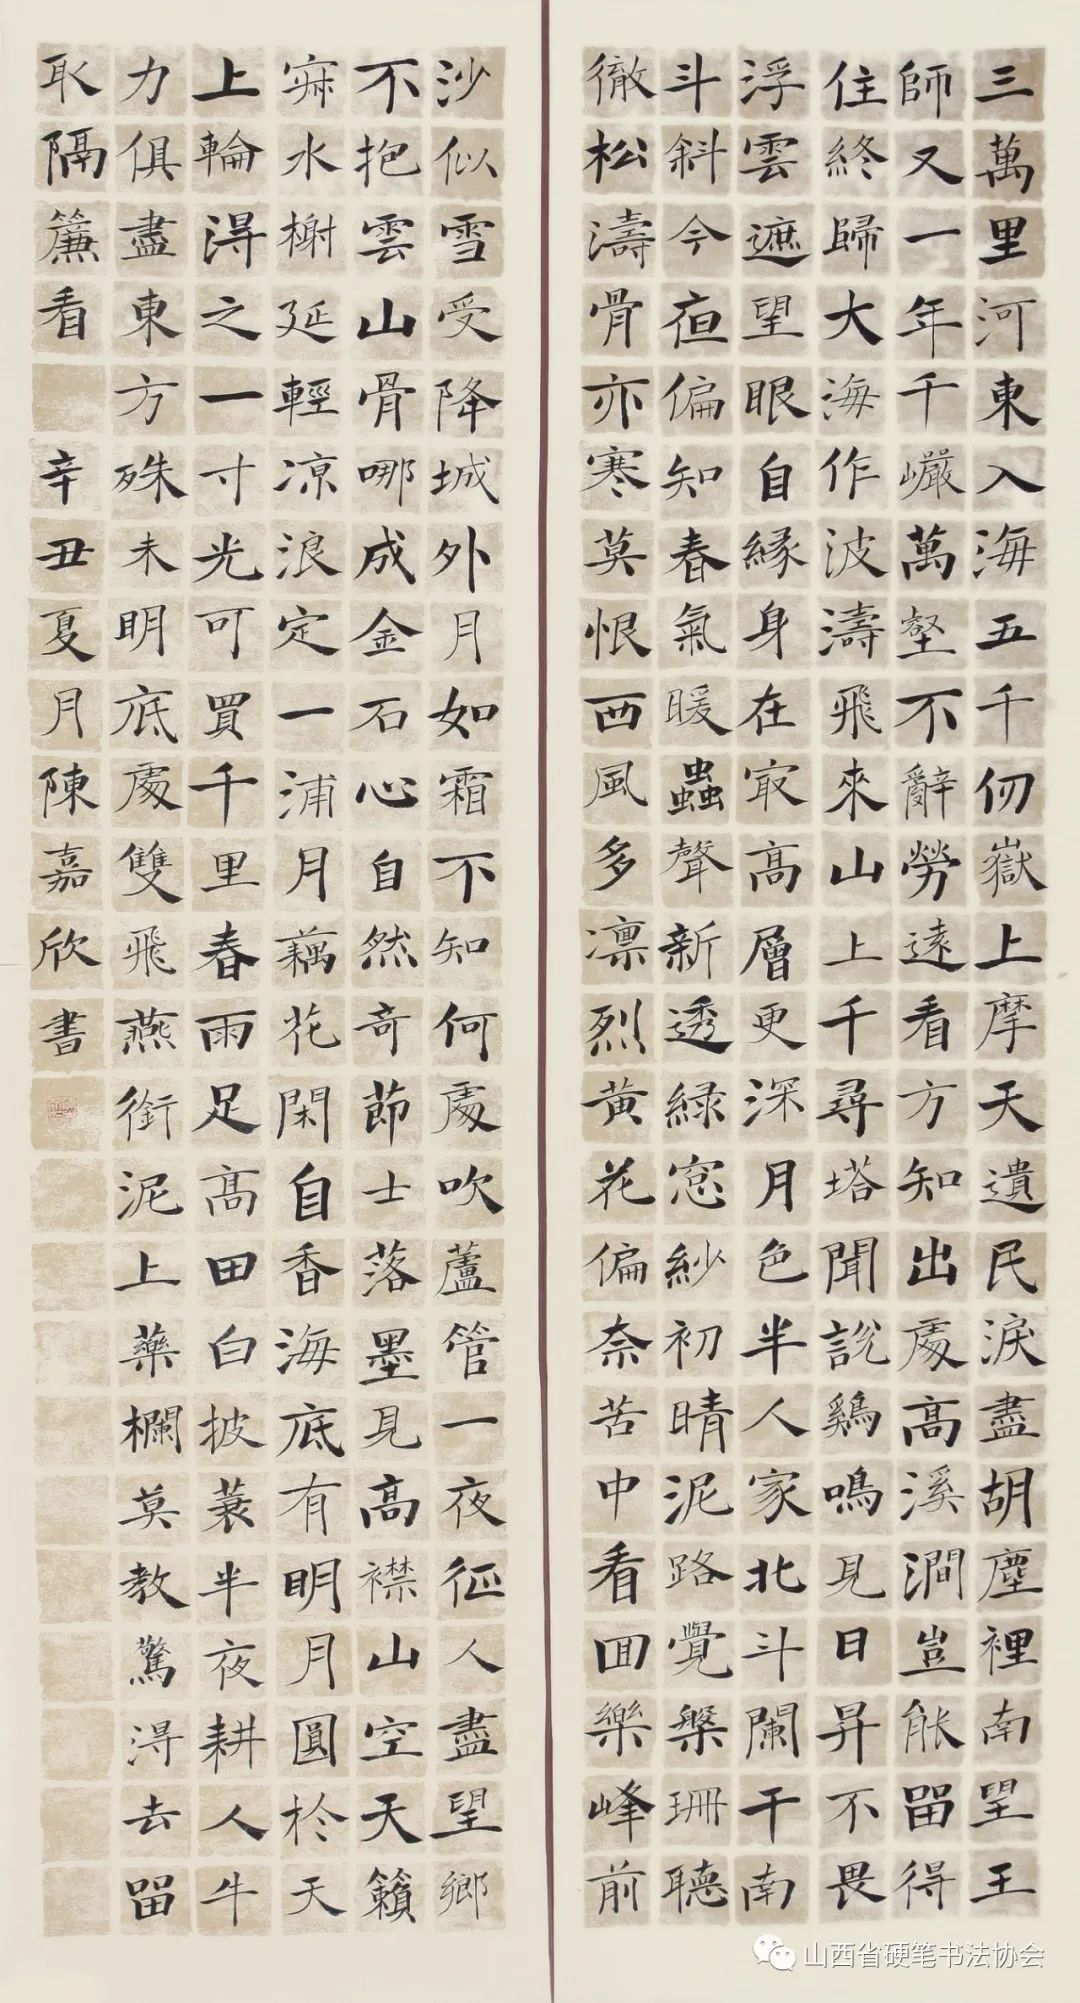 三萬里河東入海五千仞嶽上摩天遺民淚盡胡塵裡南望王
師又一年千巖萬壑不辭勞遠看方知出處高溪澗豈能留得
住終歸大海作波濤飛來山上千尋塔聞說鷄鳴見日昇不畏
浮雲遮望眼自緣身在最高層更深月色半人家北斗闌干南
斗斜今夜偏知春氣暖蟲聲新透綠窗紗初晴泥路覺槃珊聽
徹松濤骨亦寒莫恨西風多凛烈黃花偏奈苦中看回樂峰前
沙似雪受降城外月如霜不知何處吹蘆管一夜征人盡望鄉
不抱雲山骨哪成金石心自然奇節士落墨見高襟山空天籟
寂水榭延輕凉浪定一浦月藕花閑自香海底有明月圓於天
上輪得之一寸光可買千里春雨足高田白披蓑半夜耕人牛
力俱盡東方殊未明底處雙飛燕銜泥上藥欄莫教驚得去留
取隔簾看 辛丑夏月陳嘉欣書
山西省硬笔书法协会